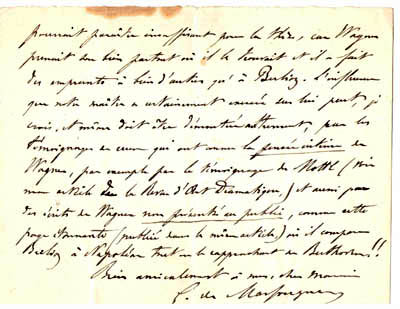 pourrait paraître insuffisant pour la thèse, car Wagner
prenait son bien partout où il le trouvait et il a fait
des emprunts à bien d'autres qu'à Berlioz. L'influence
que notre maître a certainement exercée sur lui peut, je
crois, et même doit être démontrée autrement, par les
témoignages de ceux qui ont connu la pensée intime de
Wagner, par exemple par le témoignage de Mottl (
mon article de la Revue d'Art Dramatique) et aussi par
des écrits de Wagner non présentés au public, comme cette
page étonnante (publiée dans le même article) où il compare
Berlioz à Napoléon tout en le rapprochant de Beethoven!!
Bien amicalement à vous, cher Monsieur